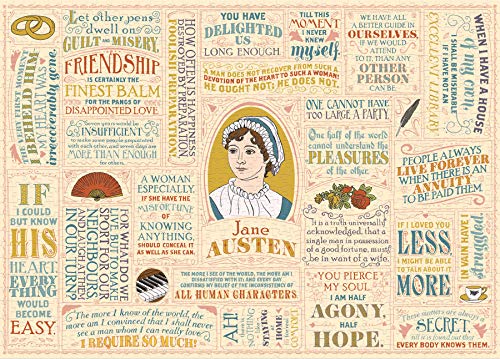 Let other pens
dwell on
GUILT AND MISERY.
FRIENDSHIP
IS CERTAINLY THE
FINEST BALM
FOR THE PANGS OF
DISAPPOINTED LOVE.
THE VERY FIRST MOMENT
I BEHELD HIM
MY HEART WAS
irrecoverably gone.
Seven years would be
INSUFFICIENT
to make some people acquainted
with each other, and seven days are
MORE THAN ENOUGH
for others.
HOW OFTEN IS HAPPINESS
DESTROYED BY PREPARATION,
FOOLISH PREPARATION.
YOU HAVE
DELIGHTED
US
LONG ENOUGH.
TILL THIS
MOMENT
I NEVER
KNEW
myself.
WE HAVE ALL
A BETTER GUIDE IN
OURSELVES,
IF WE WOULD
ATTEND
TO IT, THAN ANY
OTHER
PERSON
CAN BE.
WHEN I HAVE A HOUSE
of my own,
I SHALL BE MISERABLE
IF I HAVE NOT AN
EXCELLENT LIBRARY.
A MAN DOES NOT RECOVER FROM SUCH A
DEVOTION OF THE HEART TO SUCH A WOMAN!
HE OUGHT NOT; HE DOES NOT.
ONE CANNOT HAVE
TOO LARGE A PARTY.
One half of the world
cannot understand the
PLEASURES
of the other.
PEOPLE ALWAYS
LIVE FOREVER
WHEN THERE IS AN
ANNUITY
TO BE PAID THEM.
Jane
AUSTEN
IF
I COULD
BUT KNOW
HIS
HEART,
EVERY
THING
WOULD
BECOME
EASY.
FOR WHAT DO WE
LIVE, BUT TO MAKE
SPORT FOR OUR
NEIGHBOURS
AND LAUGH AT THEM
IN OUR TURN?
A WOMAN
ESPECIALLY,
IF SHE HAVE THE
MISFORTUNE
OF
KNOWING
ANYTHING,
SHOULD CONCEAL IT
AS WELL AS SHE CAN.
It is a truth universally
acknowledged, that a
single man in possession
of a good fortune, must
be in want of a wife.
THE MORE I SEE OF THE WORLD, THE MORE AM I
DISSATISFIED WITH IT; AND EVERY DAY
CONFIRMS MY BELIEF OF THE INCONSISTENCY OF
ALL HUMAN CHARACTERS
YOU PIERCE
MY SOUL.
I AM HALF
AGONY,
HALF
HOPE.
IF I LOVED YOU
LESS,
I MIGHT BE ABLE
TO TALK ABOUT IT
MORE
The more I know of the world, the
more am I convinced that I shall never
see a man whom I can really love.
I REQUIRE SO MUCH!
AH!
THERE IS
NOTHING
LIKE
STAYING
AT
HOME
These matters are always a
SECRET,
till it is found out that
EVERY BODY KNOWS THEM.